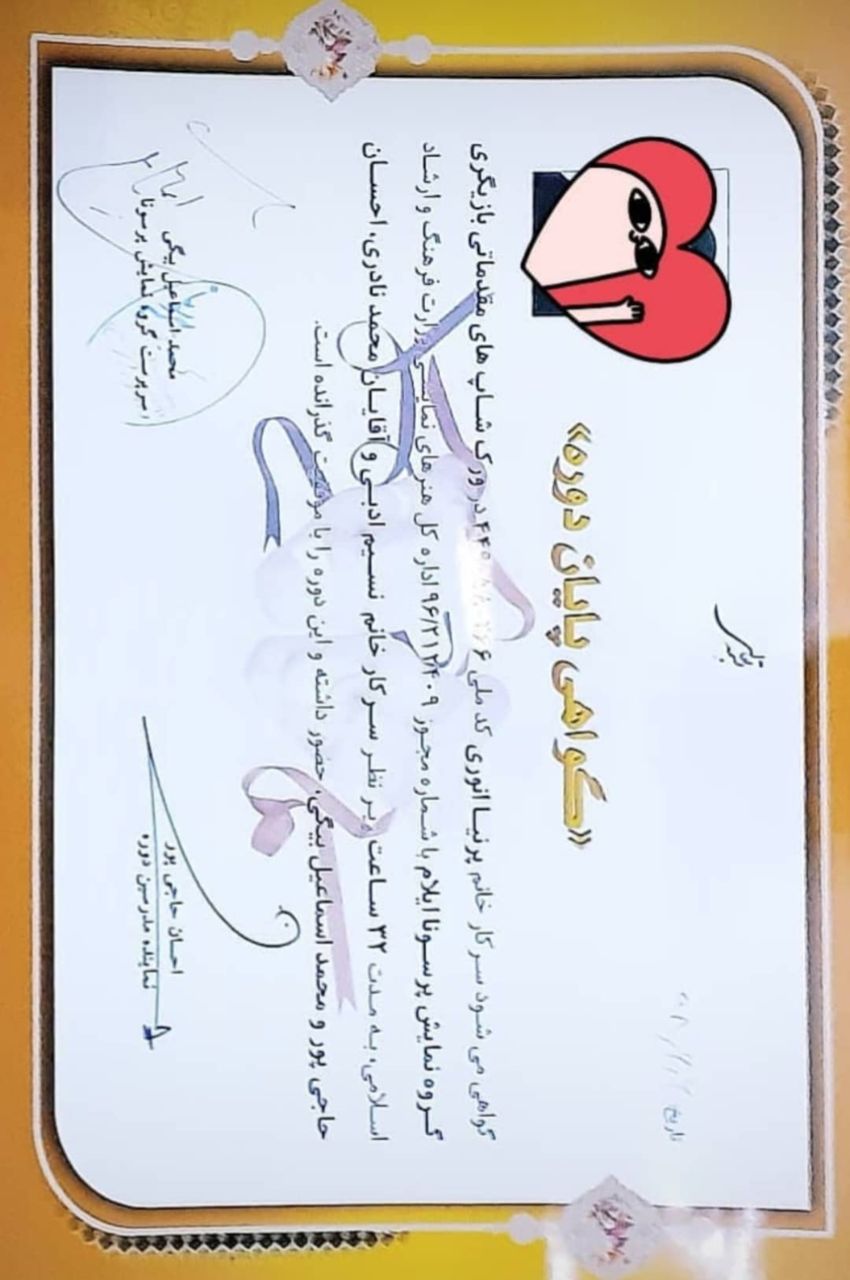 تاریخ
«گواهی پایان دوره»
گواهی می شود سرکار خانم پرنیا انوری کد ملی در ورک شاپ های مقدماتی بازیگری
گروه نمایش پرسونا ایلام با شماره مجوز ۹۶/۲۱۲۴۰۹ اداره کل هنرهای نمایشی وزارت فرهنگ و ارشاد
اسلامی، به مدت ۳۲ ساعت زیر نظر سرکار خانم نسیم ادبی و آقایان محمد نادری، احسان
حاجی پور و محمد اسماعیل بیگی، حضور داشته و این دوره را با موفقیت گذرانده است.
احسان حاجی پور
نماینده مدرسین دوره
محمد اسماعیل بیگی
سرپرست گروه نمایش پرسونا